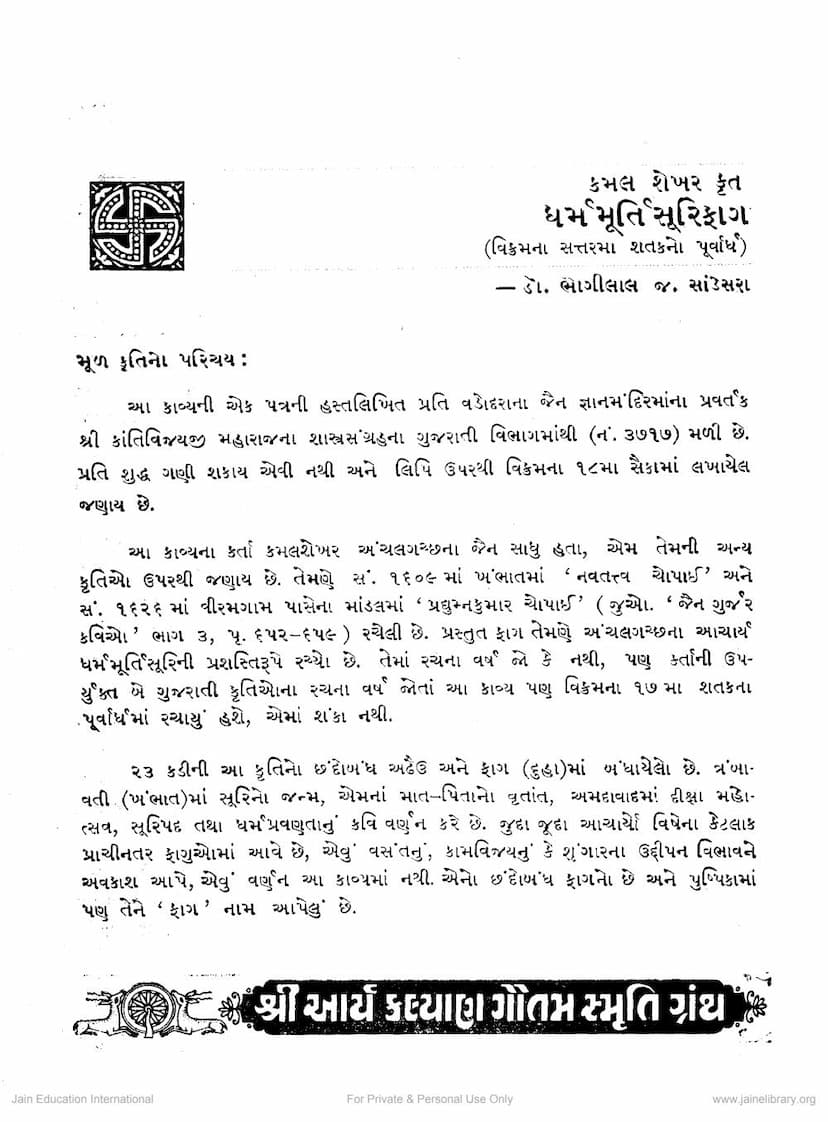 કમલ શેખર કૃત
ધર્મમૂર્તિસૂરિફાગ
(વિક્રમના સત્તરમા શતકનો પૂર્વાર્ધ)
— ડૉ. ભોગીલાલ જ. સાંડેસરા
મૂળ કૃતિનો પરિચય :
આ કાવ્યની એક પત્રની હસ્તલિખિત પ્રતિ વડોદરાના જૈન જ્ઞાનમંદિરમાંના પ્રવર્તક
શ્રી કાંતિવિજયજી મહારાજના શાસ્ત્રસંગ્રહના ગુજરાતી વિભાગમાંથી (નં. ૩૭૧૭) મળી છે.
પ્રતિ શુદ્ધ ગણી શકાય એવી નથી અને લિપિ ઉપરથી વિક્રમના ૧૮મા સૈકામાં લખાયેલ
જણાય છે.
આ કાવ્યના કર્તા કમલશેખર અંચલગચ્છના જૈન સાધુ હતા, એમ તેમની અન્ય
કૃતિઓ ઉપરથી જણાય છે. તેમણે સં. ૧૬૦૯ માં ખંભાતમાં ‘ નવતત્ત્વ ચોપાઈ’ અને
સં. ૧૬૨૬ માં વીરમગામ પાસેના માંડલમાં ‘ પ્રદ્યુમ્નકુમાર ચોપાઈ’ ( જુઓ. ‘ જૈન ગુર્જર
કવિઓ ’ ભાગ ૩, પૃ. ૬૫૨–૬૫૯ ) રચેલી છે. પ્રસ્તુત ફાગ તેમણે અંચલગચ્છના આચાર્ય
ધર્મમૂર્તિસૂરિની પ્રશસ્તિરૂપે રચ્યો છે. તેમાં રચના વર્ષ જો કે નથી, પણ કર્તાની ઉપ-
ર્યુક્ત બે ગુજરાતી કૃતિઓના રચના વર્ષ જોતાં આ કાવ્ય પણ વિક્રમના ૧૭ મા શતકના
પૂર્વાર્ધમાં રચાયું હશે, એમાં શંકા નથી.
૨૩ કડીની આ કૃતિનો છંદોબંધ અઢૈઉ અને ફાગ (દુહા)માં બંધાયેલો છે. ત્રંબા-
વતી (ખંભાત)માં સૂરિનો જન્મ, એમનાં માત–પિતાનો વૃતાંત, અમદાવાદમાં દીક્ષા મહો-
ત્સવ, સૂરિપદ તથા ધર્મપ્રવણતાનું કવિ વર્ણન કરે છે. જુદા જૂદા આચાર્યો વિષેના કેટલાક
પ્રાચીનતર ફાગુઓમાં આવે છે, એવું વસંતનું, કામવિજયનું કે શૃંગારના ઉદ્દીપન વિભાવને
અવકાશ આપે, એવું વર્ણન આ કાવ્યમાં નથી. એનો છંદોબંધ ફાગનો છે અને પુષ્પિકામાં
પણ તેને ‘ ફાગ ’ નામ આપેલું છે.
શ્રી આર્ય કલ્યાણ ગૌતમ સ્મૃતિ ગ્રંથ
Jain Education International
For Private & Personal Use Only
www.jainelibrary.org